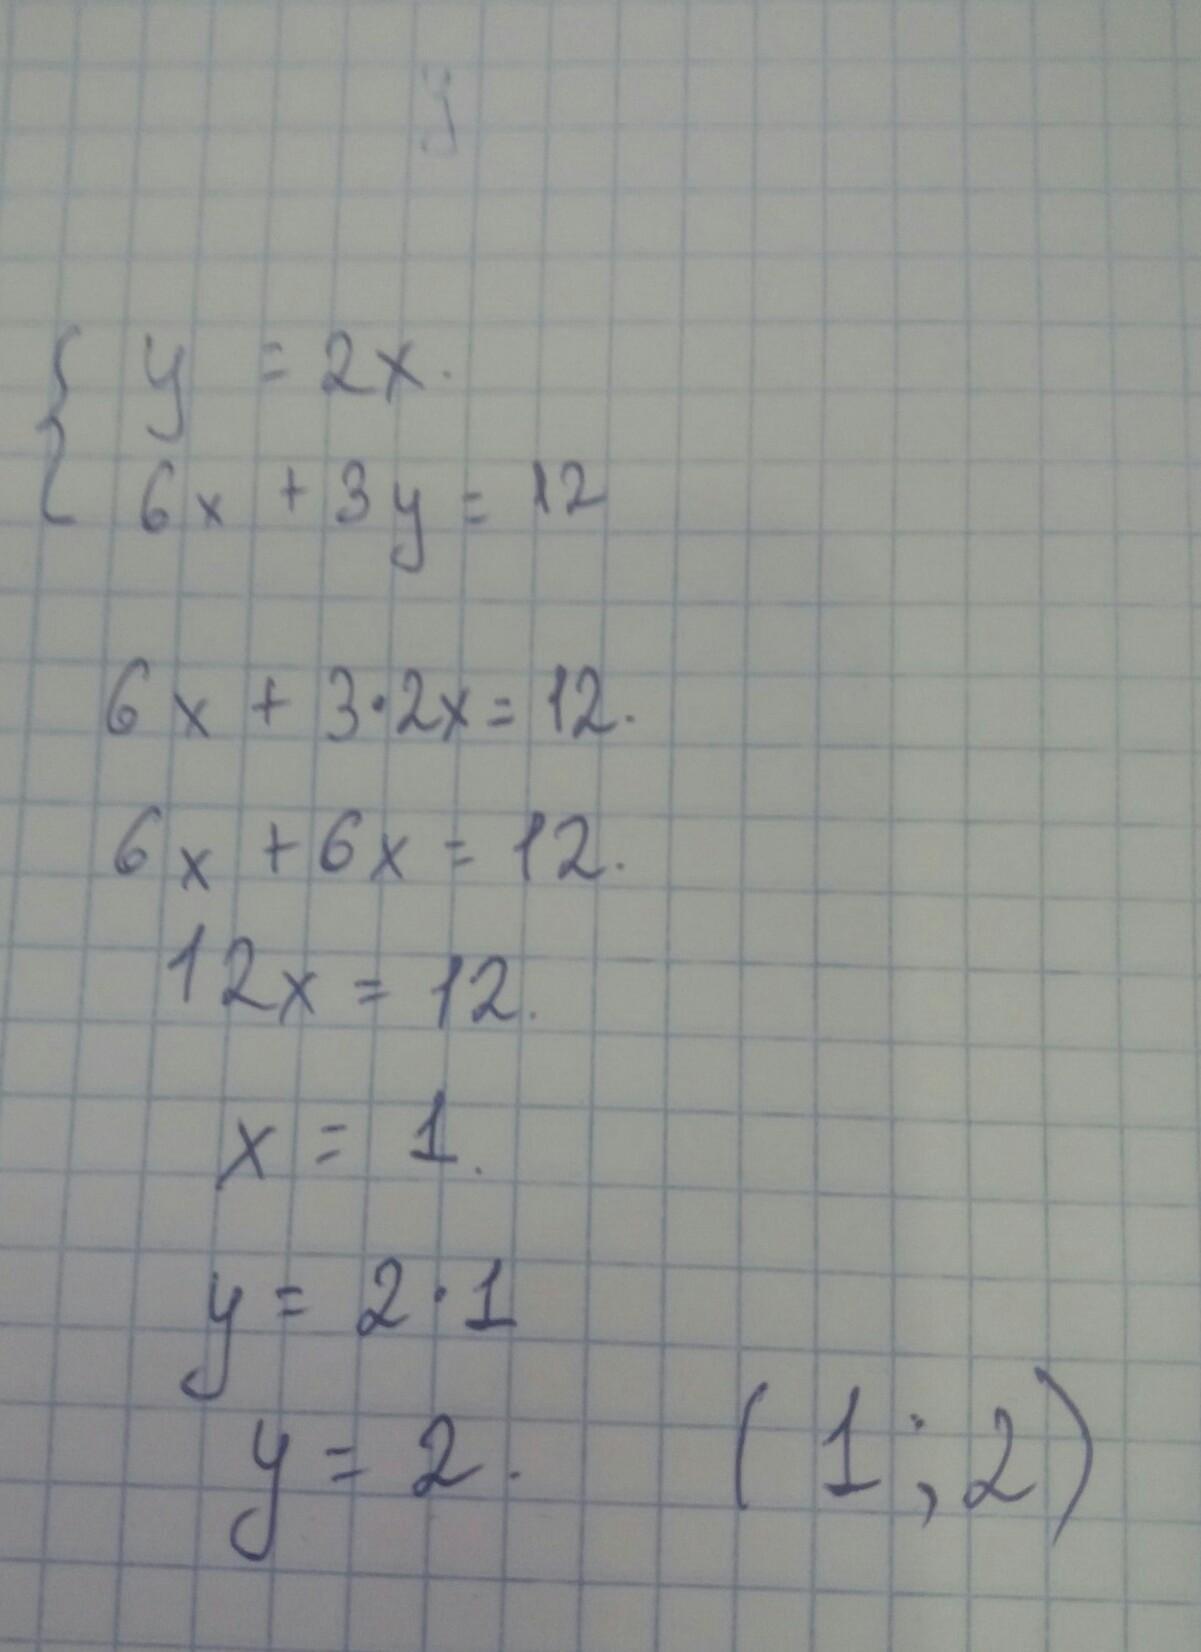 y
{ y = 2x.
6x + 3y = 12
6x + 3·2x = 12.
6x + 6x = 12.
12x = 12.
x = 1.
y = 2·1
y = 2. (1;2)